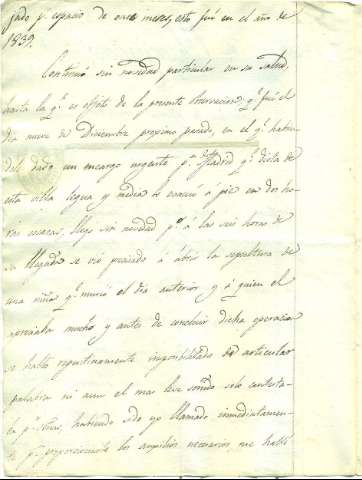 jado pr. espacio de once meses, esto fué en el año de
1839.
Continuó sin novedad particular en su salud
hasta la qe. es objeto de la presente observacion qe. fué el
dia nueve de Diciembre proximo pasado, en el qe. habien-
dole dado un encargo urgente pa. Madrid qe. dista de
esta villa legua y media se evacuó á pie en dos ho-
ras escasas, llegó sin novedad pero á las seis horas de
su llegada se vió precisado á abrir la sepultura de
una niña qe. murió el dia anterior y á quien el
apreciaba mucho y antes de concluir dicha operacion
se halló repentinamente imposibilitado de articular
palabra ni aun el mas leve sonido solo contesta-
ba pr. señas, habiendo sido yo llamado inmediatamen-
te pa. proporcionarle los ausilios necesarios me hallé